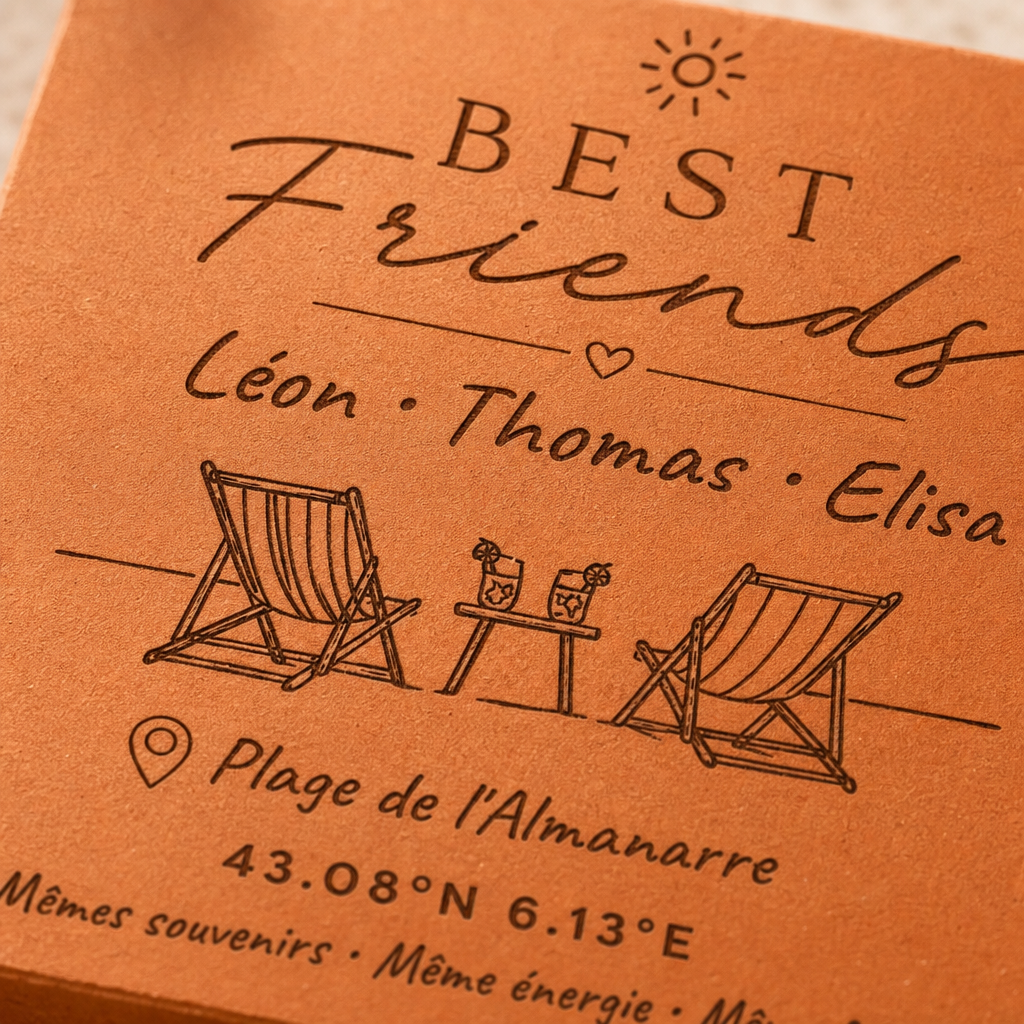 BEST
Friends
Léon · Thomas · Elisa
Plage de l'Almanarre
43.08°N 6.13°E
Mêmes souvenirs · Même énergie ·